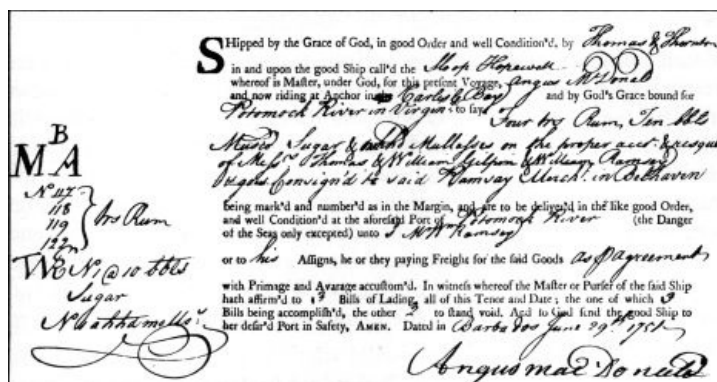 SHipped by the Grace of God, in good Order and well Condition'd, by Thomas & Thornton
in and upon the good Ship call'd the Sloop Hopewell
whereof is Master, under God, for this present Voyage, Angus McDonald
and now riding at Anchor in Carlisle Bay and by God's Grace bound for
Potomock River in Virgin: to say
Four trs Rum, Ten bbls
Musco Sugar & Mullasses on the proper acct. & resque
of Messrs Thomas & William Gilpin & William Ramsay
Consign'd to said Ramsay Mercht. in Belhaven
being mark'd and number'd as in the Margin, and are to be deliver'd in the like good Order,
and well Condition'd at the aforesaid Port of Potomock River (the Danger
of the Seas only excepted) unto Ramsey
or to his Assigns, he or they paying Freight for the said Goods as p agreement
with Primage and Avarage accustom'd. In witness whereof the Master or Purser of the said Ship
hath affirm'd to 3 Bills of Lading, all of this Tenor and Date; the one of which 3
Bills being accomplish'd, the other 2 to stand void. And so God send the good Ship to
her desir'd Port in Safety, AMEN. Dated in Barbados June 29th
Angus mac Donald
B
MA
No 117
118
119
122
trs Rum
No 1 @ 10 bbls
Sugar